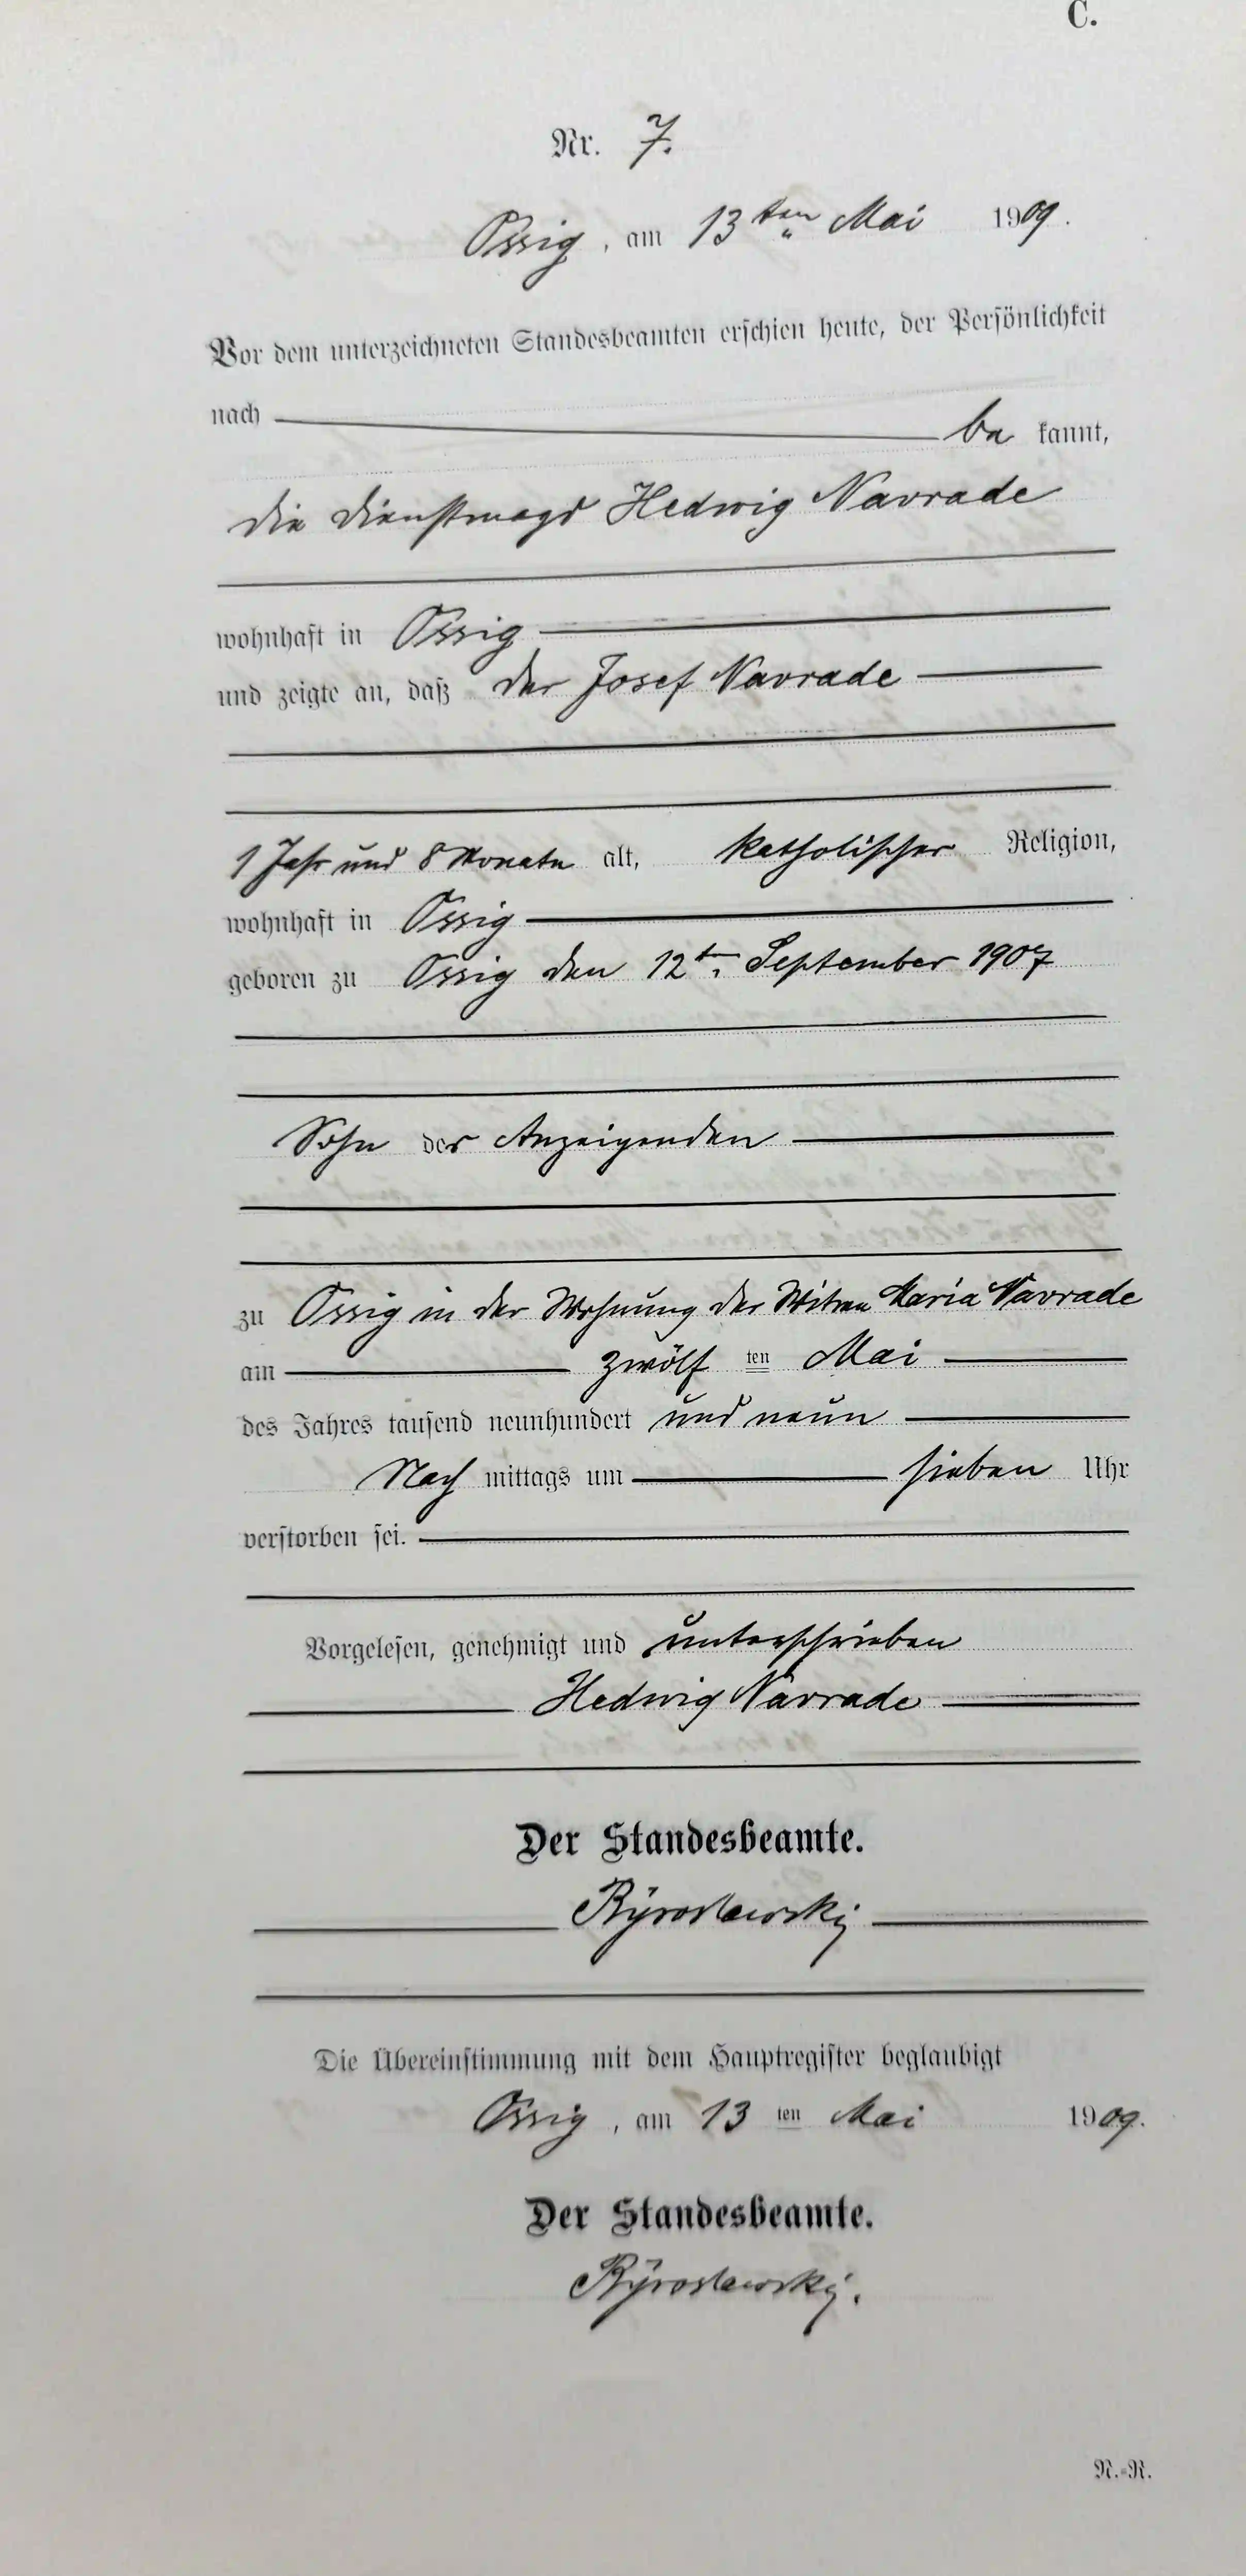 C.
Nr. 7.
Ossig, am 13ten Mai 1909.
Vor dem unterzeichneten Standesbeamten erschien heute, der Persönlichkeit
nach be kannt,
die Dienstmagd Hedwig Navrade
wohnhaft in Ossig
und zeigte an, daß der Josef Navrade
1 Jahr und 8 Monate alt, katholischer Religion,
wohnhaft in Ossig
geboren zu Ossig den 12t. September 1907
Sohn der Anzeigenden
zu Ossig in der Wohnung der Witwe Maria Navrade
am zwölf ten Mai
des Jahres tausend neunhundert und neun
Nach mittags um sieben Uhr
verstorben sei.
Vorgelesen, genehmigt und unterschrieben
Hedwig Navrade
Der Standesbeamte.
Die Übereinstimmung mit dem Hauptregister beglaubigt
Ossig, am 13 ten Mai 1909.
Der Standesbeamte.
N.-R.